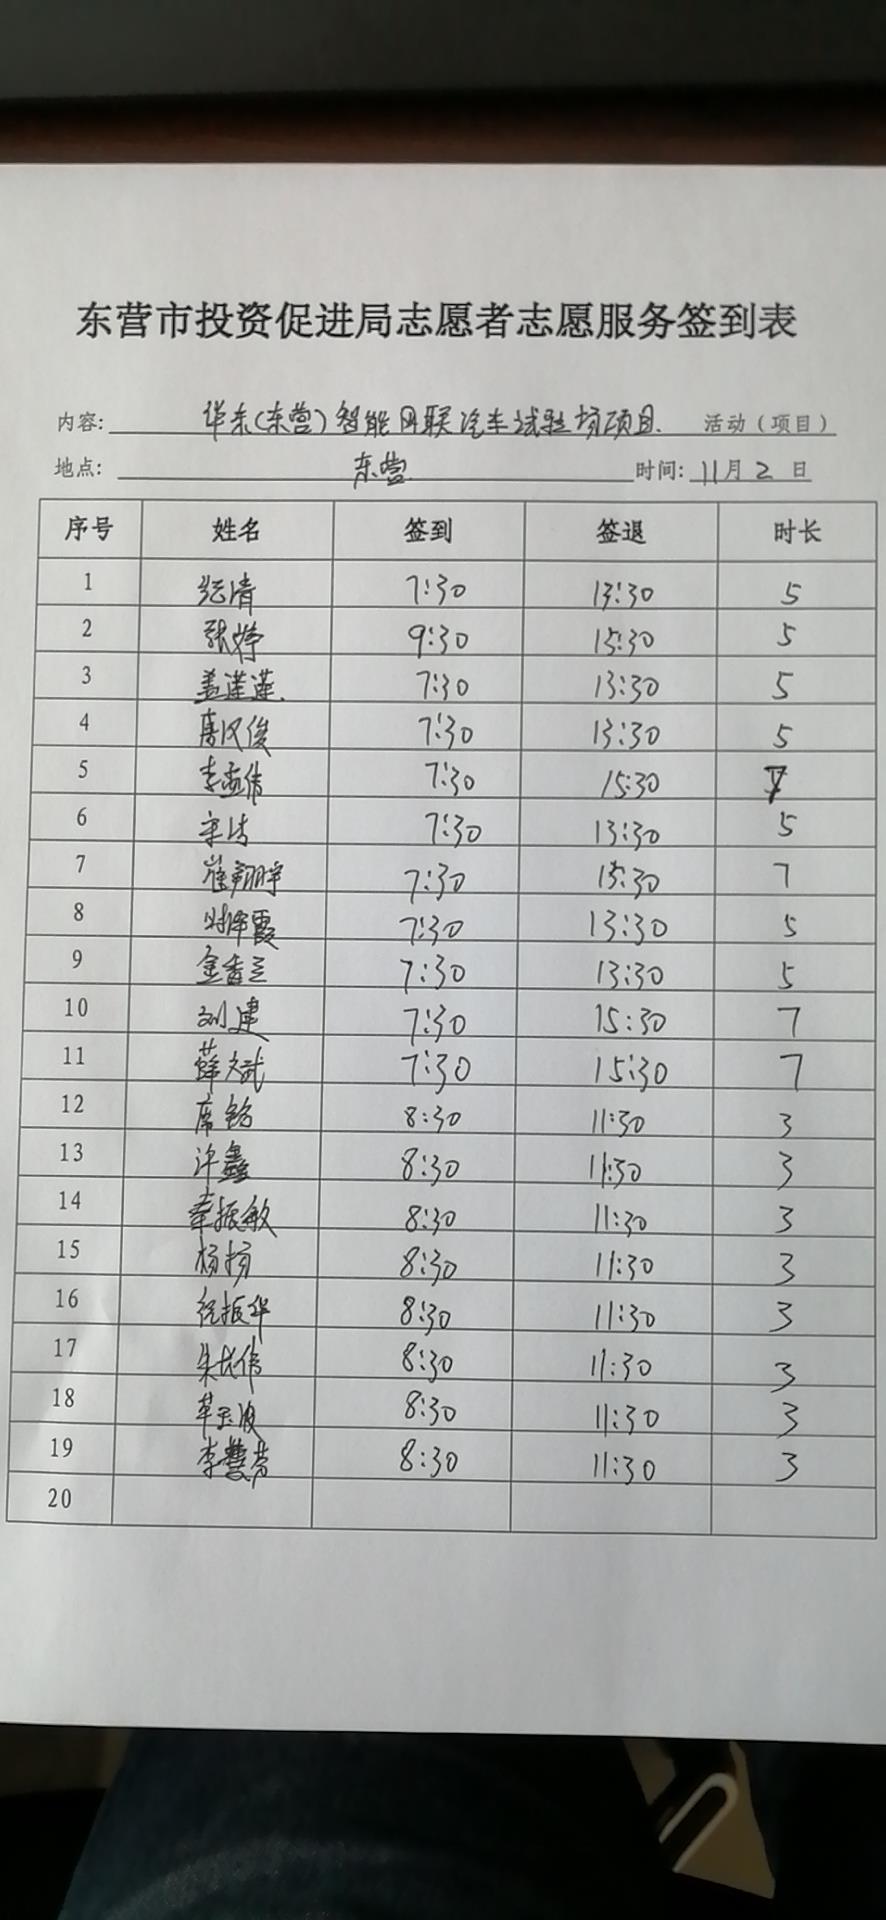 东营市投资促进局志愿者志愿服务签到表
内容: 华东(东营)智能网联汽车试验场项目. 活动(项目)
地点: 东营 时间: 11月2日
序号 姓名 签到 签退 时长
1 纪清 7:30 13:30 5
2 张婷 9:30 15:30 5
3 盖莲莲 7:30 13:30 5
4 唐汉俊 7:30 13:30 5
5 李孟伟 7:30 15:30 7
6 宋洁 7:30 13:30 5
7 崔翔宇 7:30 15:30 7
8 霞 7:30 13:30 5
9 金香兰 7:30 13:30 5
10 刘建 7:30 15:30 7
11 薛文武 7:30 15:30 7
12 席铭 8:30 11:30 3
13 许鑫 8:30 11:30 3
14 振敏 8:30 11:30 3
15 杨扬 8:30 11:30 3
16 振华 8:30 11:30 3
17 朱伟 8:30 11:30 3
18 波 8:30 11:30 3
19 李慧芳 8:30 11:30 3
20